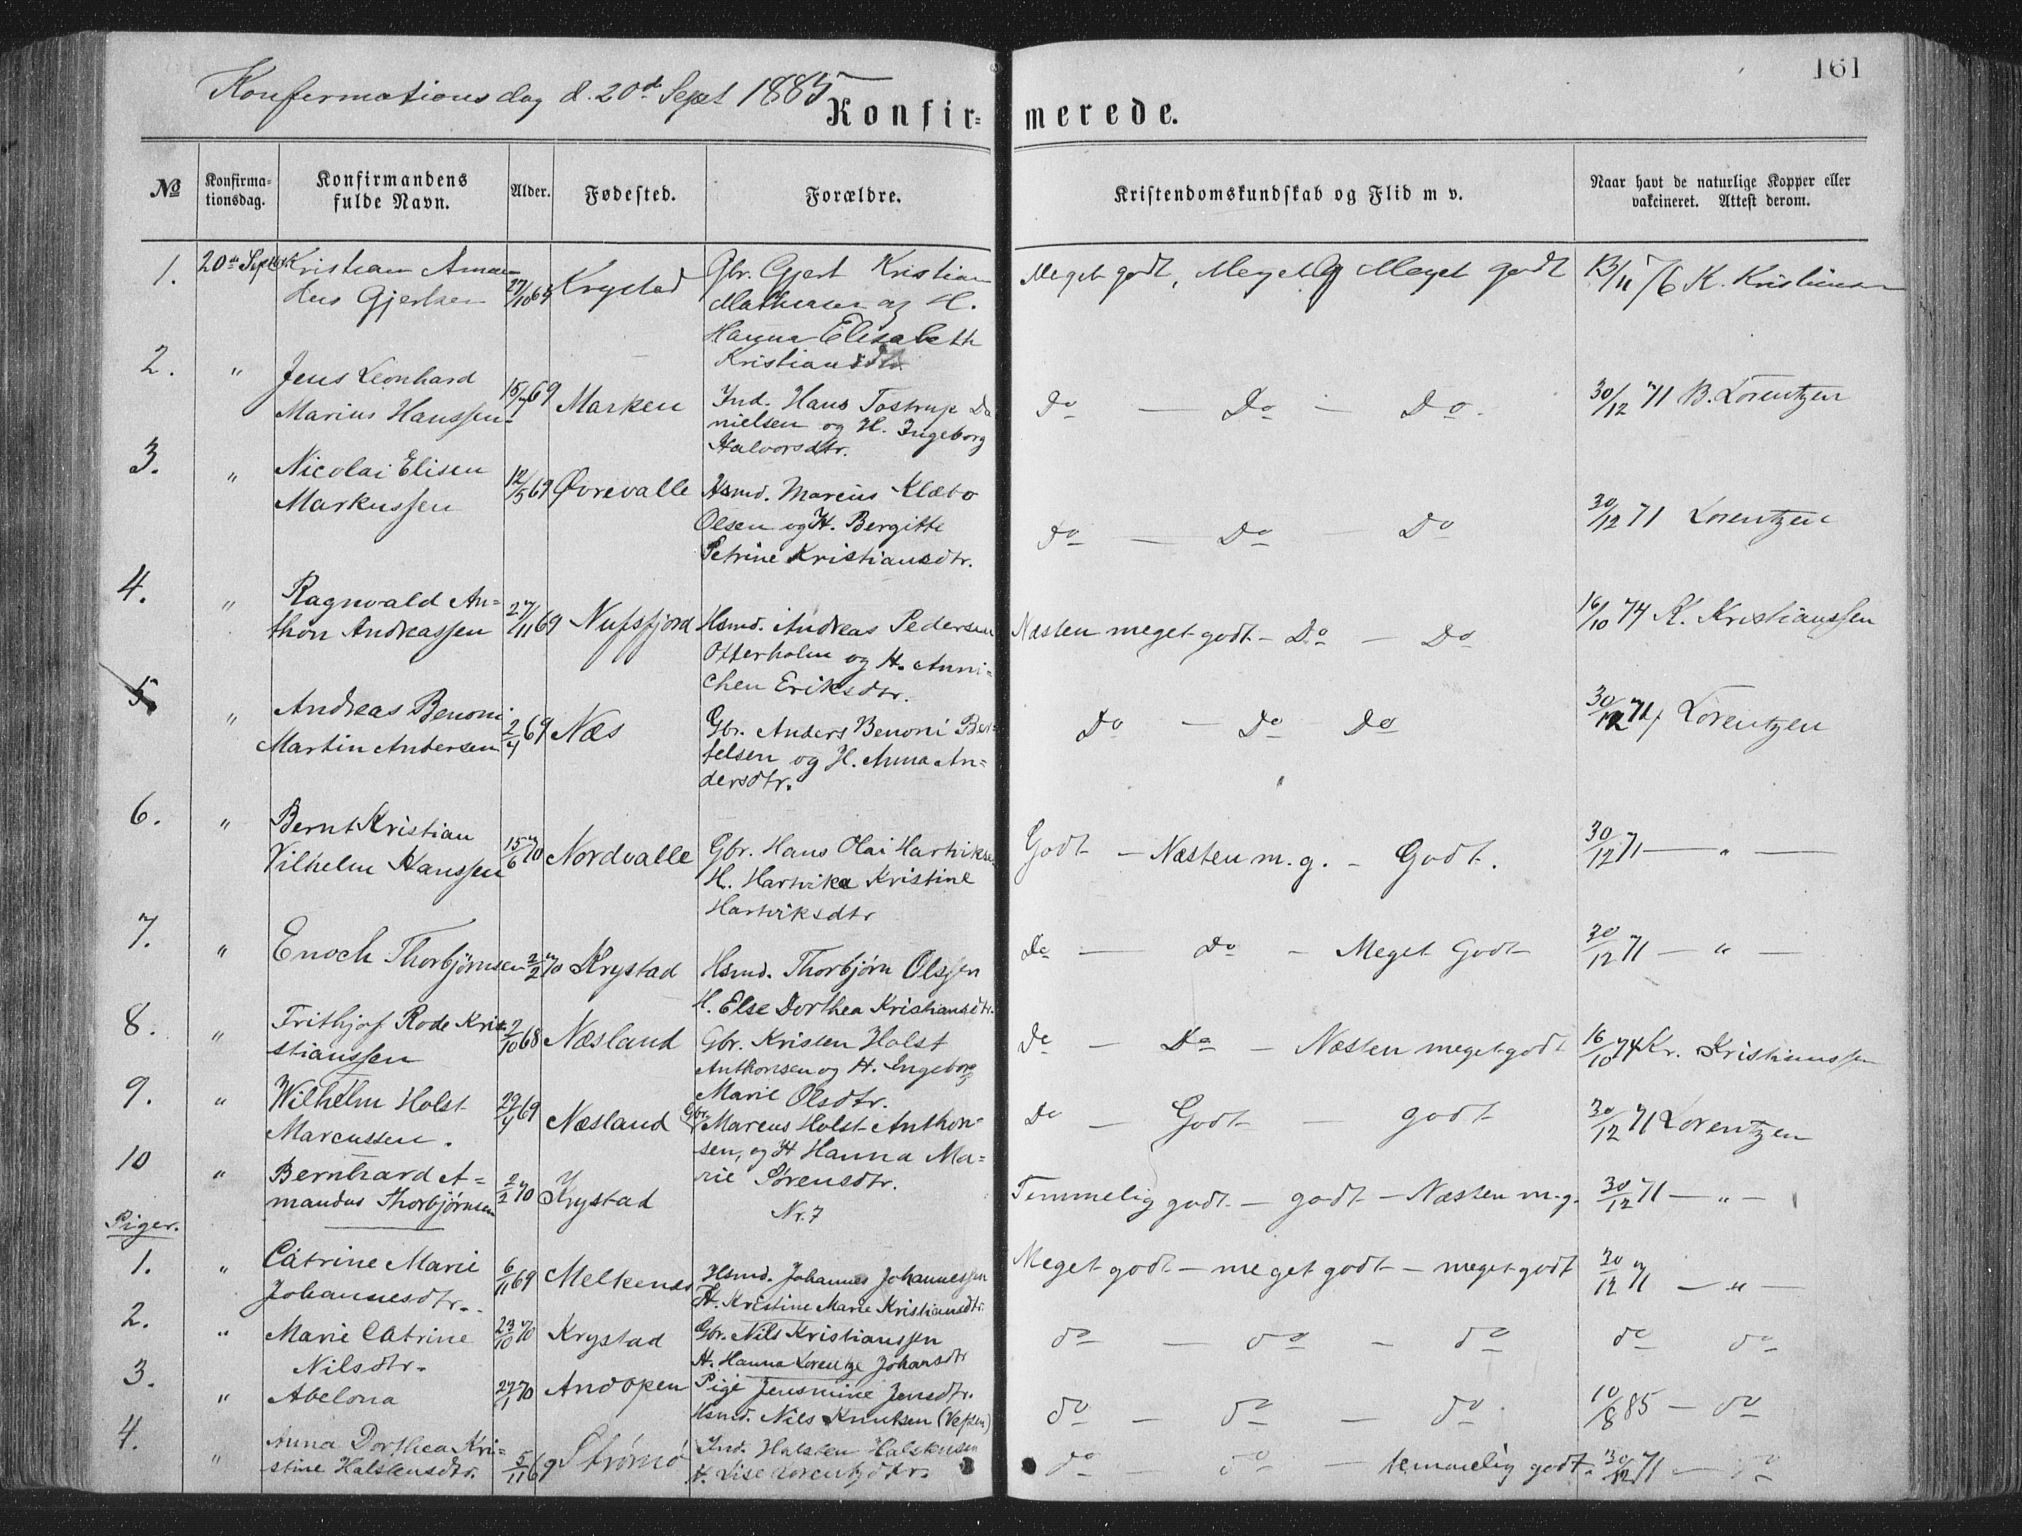 161
Konfirmationsdag d. 20de Sept 1885
Konfir- merede.
№ Konfirma-tionsdag. Konfirmandens fulde Navn. Alder. Fødested. Forældre. Kristendomskundskab og Flid m v. Naar havt de naturlige Kopper eller vakcineret. Attest derom.
1. 20de Septbr Kristian Aman- 27/10 65 Krystad Gbr. Gjert Kristian Meget godt, Meget g Meget godt 13/11 76 K. Kristiansen
deus Gjertsen Mathisen og H.
Hanna Elisabeth
Kristiansdtr.
2. " Jens Leonhard 15/7 69 Marken Ind. Hans Tostrup Da do — Do — Do. 30/12 71 B. Lorentzen
Marius Hanssen. nielsen og H. Ingeborg
Halvorsdtr.
3. " Nicolai Elisen 12/5 69 Øvrevalle Hsmd. Marcus Klæbo do — Do — Do 30/12 71 Lorentzen
Markussen Olsen og H. Bergitte
Petrine Kristiansdtr.
4. " Ragnvald An= 27/11 69 Nufsfjord Hsmd. Andreas Pedersen Næsten meget godt — Do — Do 16/10 74 K. Kristianssen
thon Andreassen Otterholm og H. Anni=
chen Eriksdtr.
5 " Andreas Benoni 2/4 69 Næs Gbr. Anders Benoni Ber= Do — Do Do 30/12 71 Lorentzen
Martin Andersen telsen og H. Anna An=
dersdtr.
6. " Bernt Kristian 15/6 70 Nordvalle Gbr. Hans Olai Hartviksen Godt — Næsten m.g. — Godt. 30/12 71 — " —
Vilhelm Hanssen H. Hartvika Kristine
Hartviksdtr
7. " Enoch Thorbjørnsen 2/2 70 Krystad Hsmd. Thorbjørn Olssen do — do — Meget Godt 30/12 71 — " —
H. Else Dorthea Kristiansdtr.
8. " Frithjof Rode Kri- 2/10 68 Næsland Gbr. Kristen Holst do — Do — Næsten meget godt 16/10 74 Kr. Kristianssen
stianssen Anthonsen og H. Ingeborg
Marie Olsdtr.
9. " Wilhelm Holst 29/4 69 Næsland Gbr. Marcus Holst Anthon= Do — Godt — godt 30/12 71 Lorentzen
Marcussen. sen, og H Hanna Ma=
rie Sørensdtr.
10 " Bernhard A= 2/2 70 Krystad Nr. 7 Temmelig godt. — godt — Næsten m.g. 30/12 71 — " —
mandus Thorbjørnsen
Piger.
1. " Catrine Marie 6/11 69 Melkenes Hsmd. Johannes Johannessen Meget godt — meget godt — meget godt 30/12 71 — " —
Johannesdtr. H. Kristine Marie Kristiansdtr.
2. " Marie Catrine 23/10 70 Krystad Gbr. Nils Kristianssen do — do — do do do
Nilsdtr. H. Hanna Lorentze Johansdtr
3. " Abelona 27/1 70 Andopen Pige Jensmine Jensdtr. do — do — do 10/8 85 — do
Hsmd. Nils Knutsen (Vefsen)
4. " Anna Dorthea Kri= 5/11 69 Strømø Ind. Halsten Halstensen do — do — temmelig godt. 30/12 71 — do
stine Halstensdtr. H. Lise Lorentzdtr.